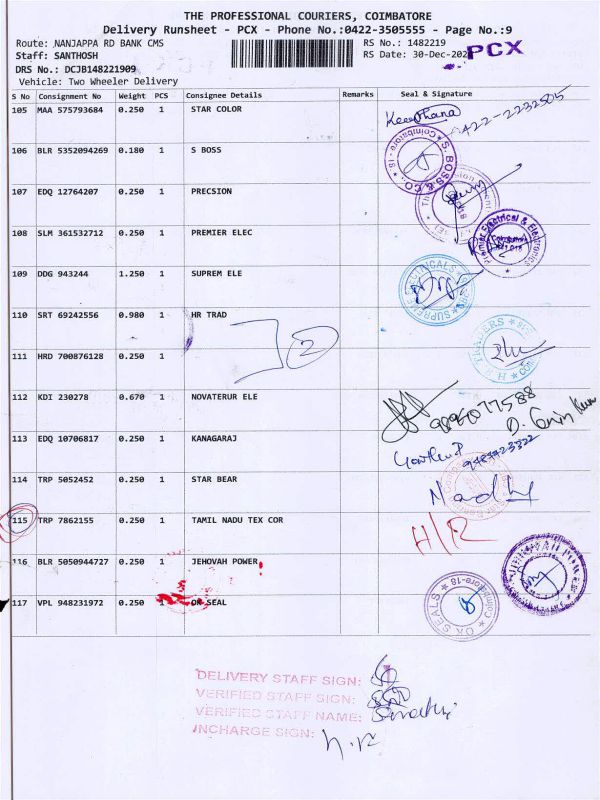 THE PROFESSIONAL COURIERS, COIMBATORE
Delivery Runsheet - PCX - Phone No.:0422-3505555 - Page No.:9
Route: NANJAPPA RD BANK CMS
RS No.: 1482219
Staff: SANTHOSH
RS Date: 30-Dec-202
PCX
DRS No.: DCJB148221909
Vehicle: Two Wheeler Delivery
S No Consignment No Weight PCS Consignee Details Remarks Seal & Signature
105 MAA 575793684 0.250 1 STAR COLOR
0422-2232505
106 BLR 5352094269 0.180 1 S BOSS
S. BOSS & CO. Coimbatore-18
107 EDQ 12764207 0.250 1 PRECSION
108 SLM 361532712 0.250 1 PREMIER ELEC
Premier Electrical & Electronics
109 DDG 943244 1.250 1 SUPREM ELE
110 SRT 69242556 0.980 1 HR TRAD
2
111 HRD 700876128 0.250 1
112 KDI 230278 0.670 1 NOVATERUR ELE
113 EDQ 10706817 0.250 1 KANAGARAJ
114 TRP 5052452 0.250 1 STAR BEAR
115 TRP 7862155 0.250 1 TAMIL NADU TEX COR
116 BLR 5050944727 0.250 1 JEHOVAH POWER
117 VPL 948231972 0.250 1 OK SEAL
OK SEALS Coimbatore-18
DELIVERY STAFF SIGN:
VERIFIED STAFF SIGN:
VERIFIED STAFF NAME:
INCHARGE SIGN: